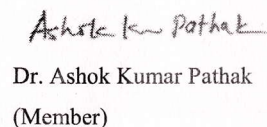 Ashok Ku Pathak
Dr. Ashok Kumar Pathak
(Member)